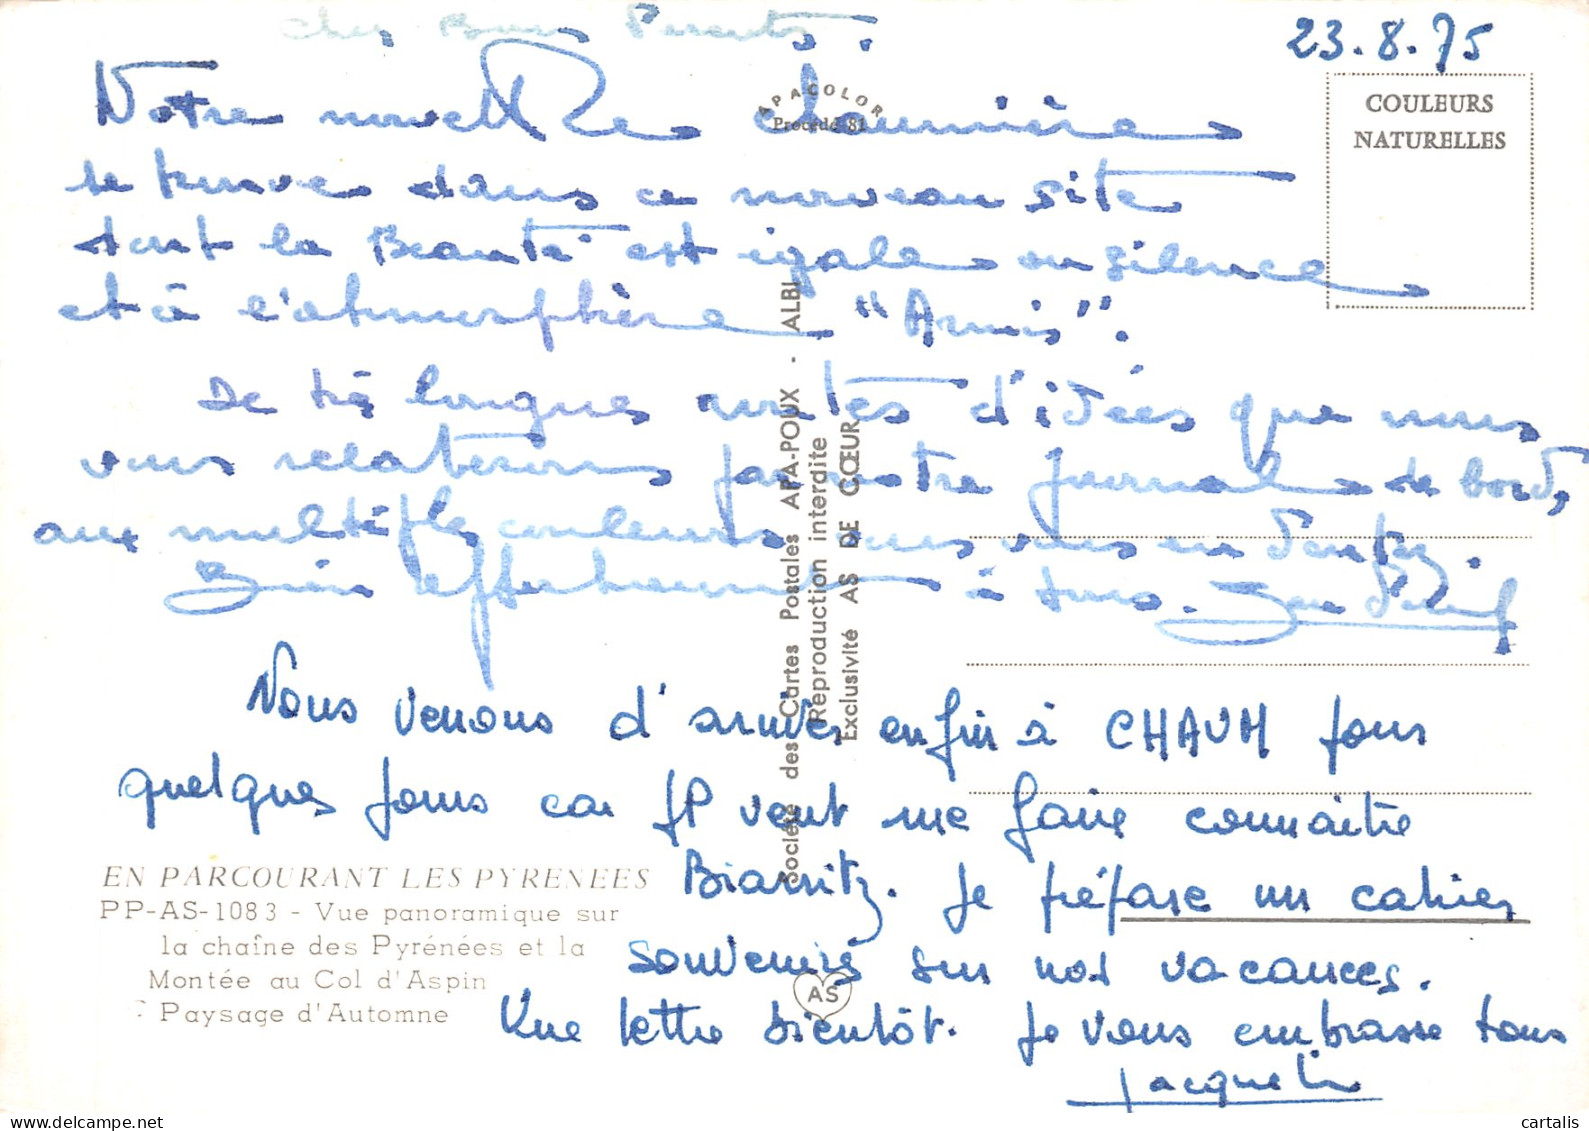 Chers Bons Parents.
23.8.75
APACOLOR
Procédé 81
COULEURS
NATURELLES
Notre nouvelle chaumière
se trouve dans ce nouveau site
dont la Beauté est égale au silence
et à l'atmosphère "Amis".
De très longues notes d'idées que nous
vous relaterons par notre journal de bord,
aux multiples couleurs vous en
Bien affectueusement à tous.
Nous venons d'arriver enfin à CHAUM pour
quelques jours car JP veut me faire connaitre
Biarritz. Je prépare un cahier
souvenirs sur nos vacances.
Une lettre bientôt. Je vous embrasse tous
Jacqueline
Société des Cartes Postales APA-POUX - ALBI
Reproduction interdite
Exclusivité AS DE CŒUR
EN PARCOURANT LES PYRENEES
PP-AS-1083 - Vue panoramique sur
la chaîne des Pyrénées et la
Montée au Col d'Aspin
Paysage d'Automne
AS
cartalis